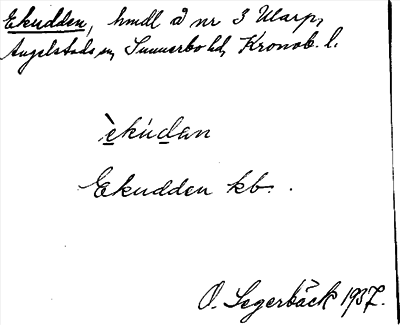 Ekudden, hmdl å nr 3 Ularp,
Angelstads sn, Sunnerbo hd, Kronob. l.
èkúdan
Ekudden kb.
O. Segerbäck 1937.